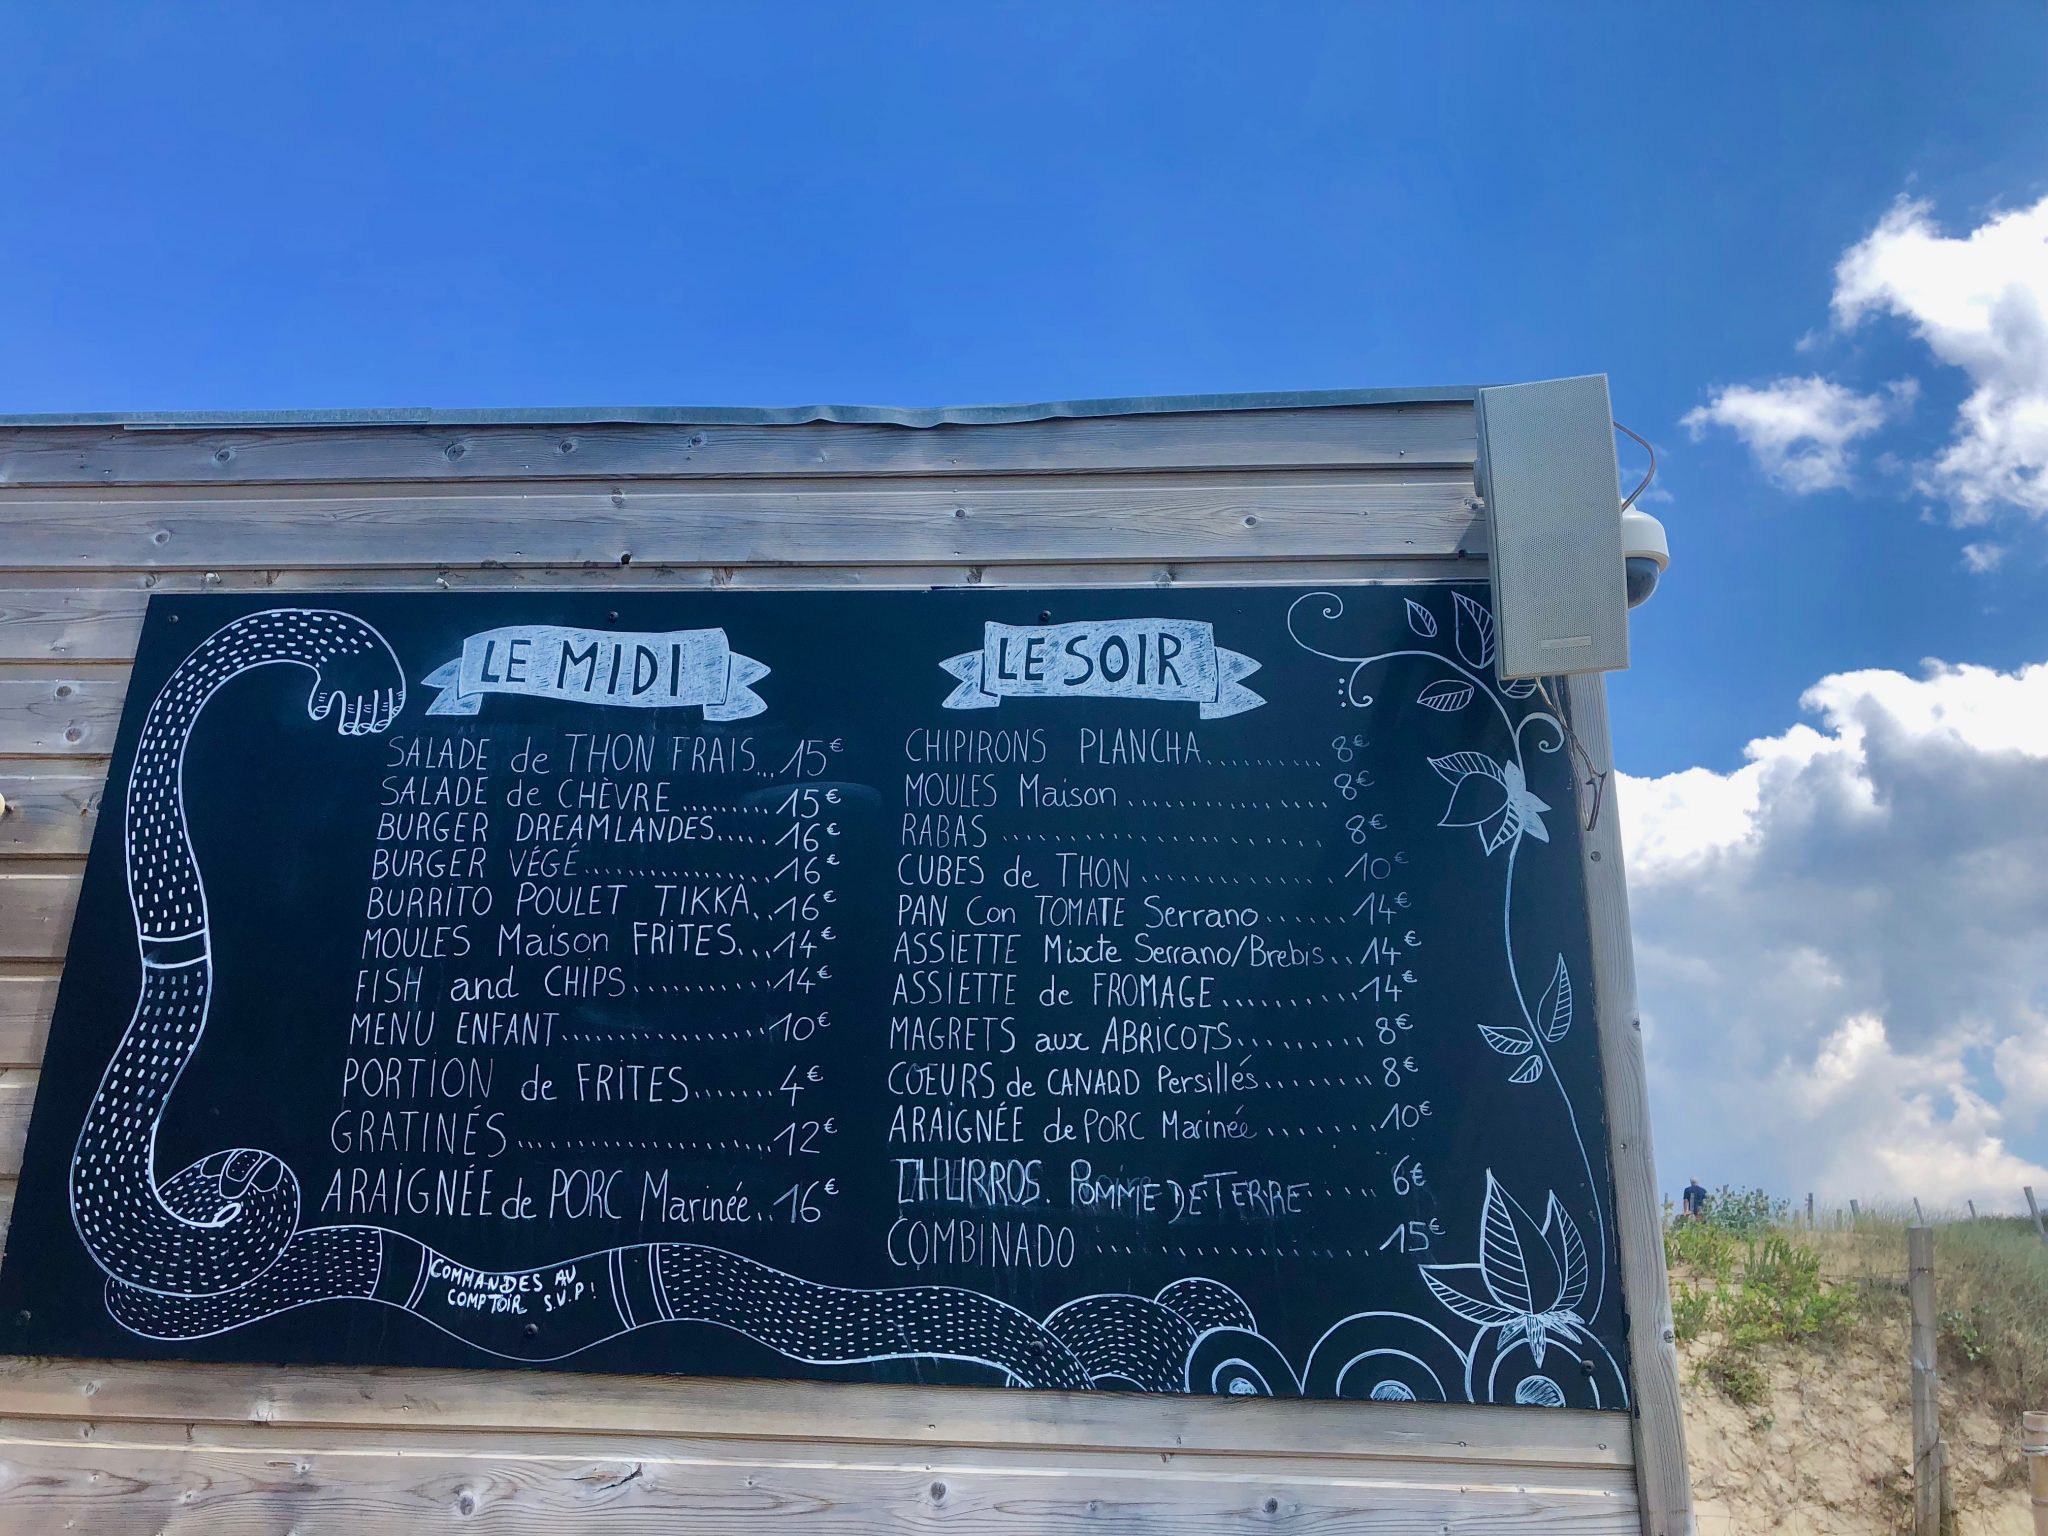 LE MIDI
SALADE de THON FRAIS... 15€
SALADE de CHÈVRE ........ 15€
BURGER DREAMLANDES..... 16€
BURGER VÉGÉ................. 16€
BURRITO POULET TIKKA.. 16€
MOULES Maison FRITES... 14€
FISH and CHIPS............ 14€
MENU ENFANT................ 10€
PORTION de FRITES...... 4€
GRATINÉS..................... 12€
ARAIGNÉE de PORC Marinée.. 16€
COMMANDES AU
COMPTOIR S.V.P!
LE SOIR
CHIPIRONS PLANCHA.......... 8€
MOULES Maison ................. 8€
RABAS .......................... 8€
CUBES de THON ............... 10€
PAN Con TOMATE Serrano...... 14€
ASSIETTE Mixte Serrano/Brebis.. 14€
ASSIETTE de FROMAGE.......... 14€
MAGRETS aux ABRICOTS......... 8€
COEURS de CANARD Persillés....... 8€
ARAIGNÉE de PORC Marinée ...... 10€
CHURROS. POMME DE TERRE ..... 6€
COMBINADO .................... 15€